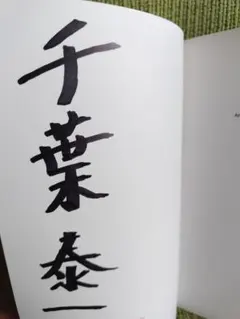 千葉泰一